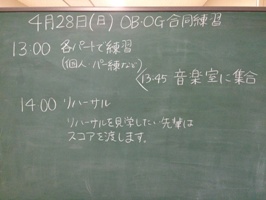 4月28日(日) OB・OG合同練習
13:00 各パートで練習
(個人・パー練など)
13:45 音楽室に集合
14:00 リハーサル
リハーサルを見学したい先輩は
スコアを渡します。